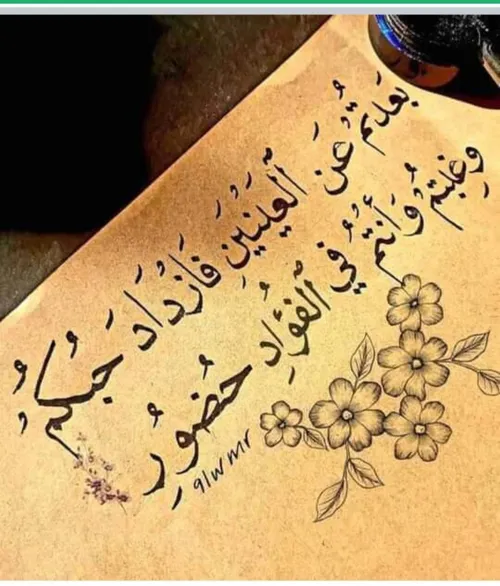 بَعُدتُمْ عَنِ ٱلعَيْنَيْنِ فَازْدَادَ حُبُّكُمُ
وَغِبْتُمْ وَأَنْتُمْ فِي ٱلفُؤَادِ حُضُورُ
9lwmr